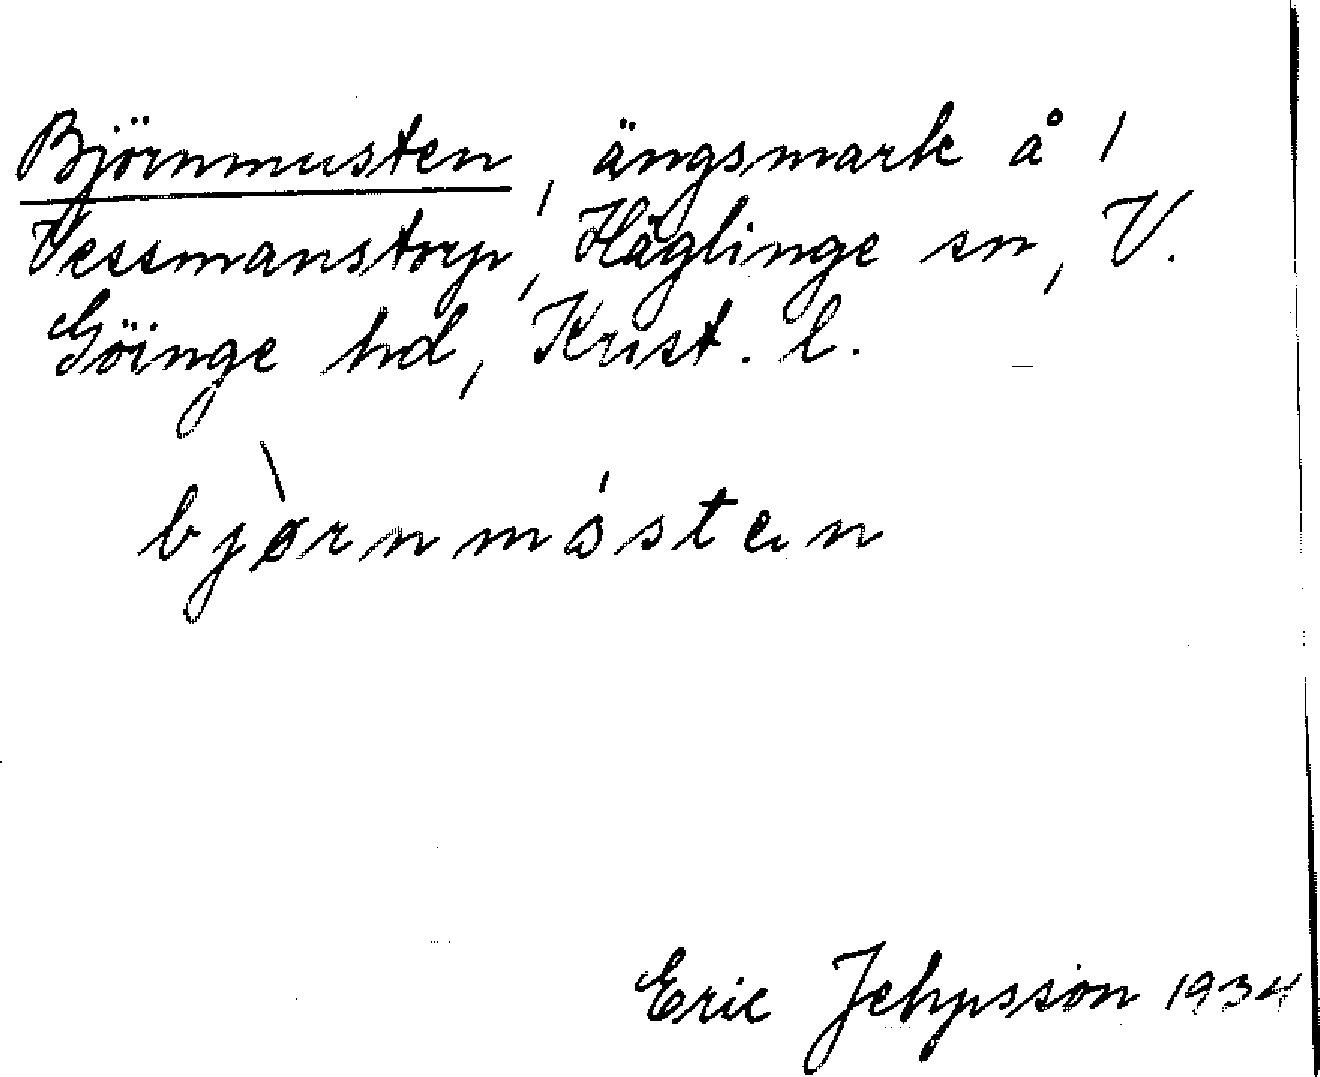 Björnmusten, ängsmark å 1
Vessmanstorp, Häglinge sn, V.
Göinge hd, Krist. l.
bjørnmåsten
Eric Jepsson 1934